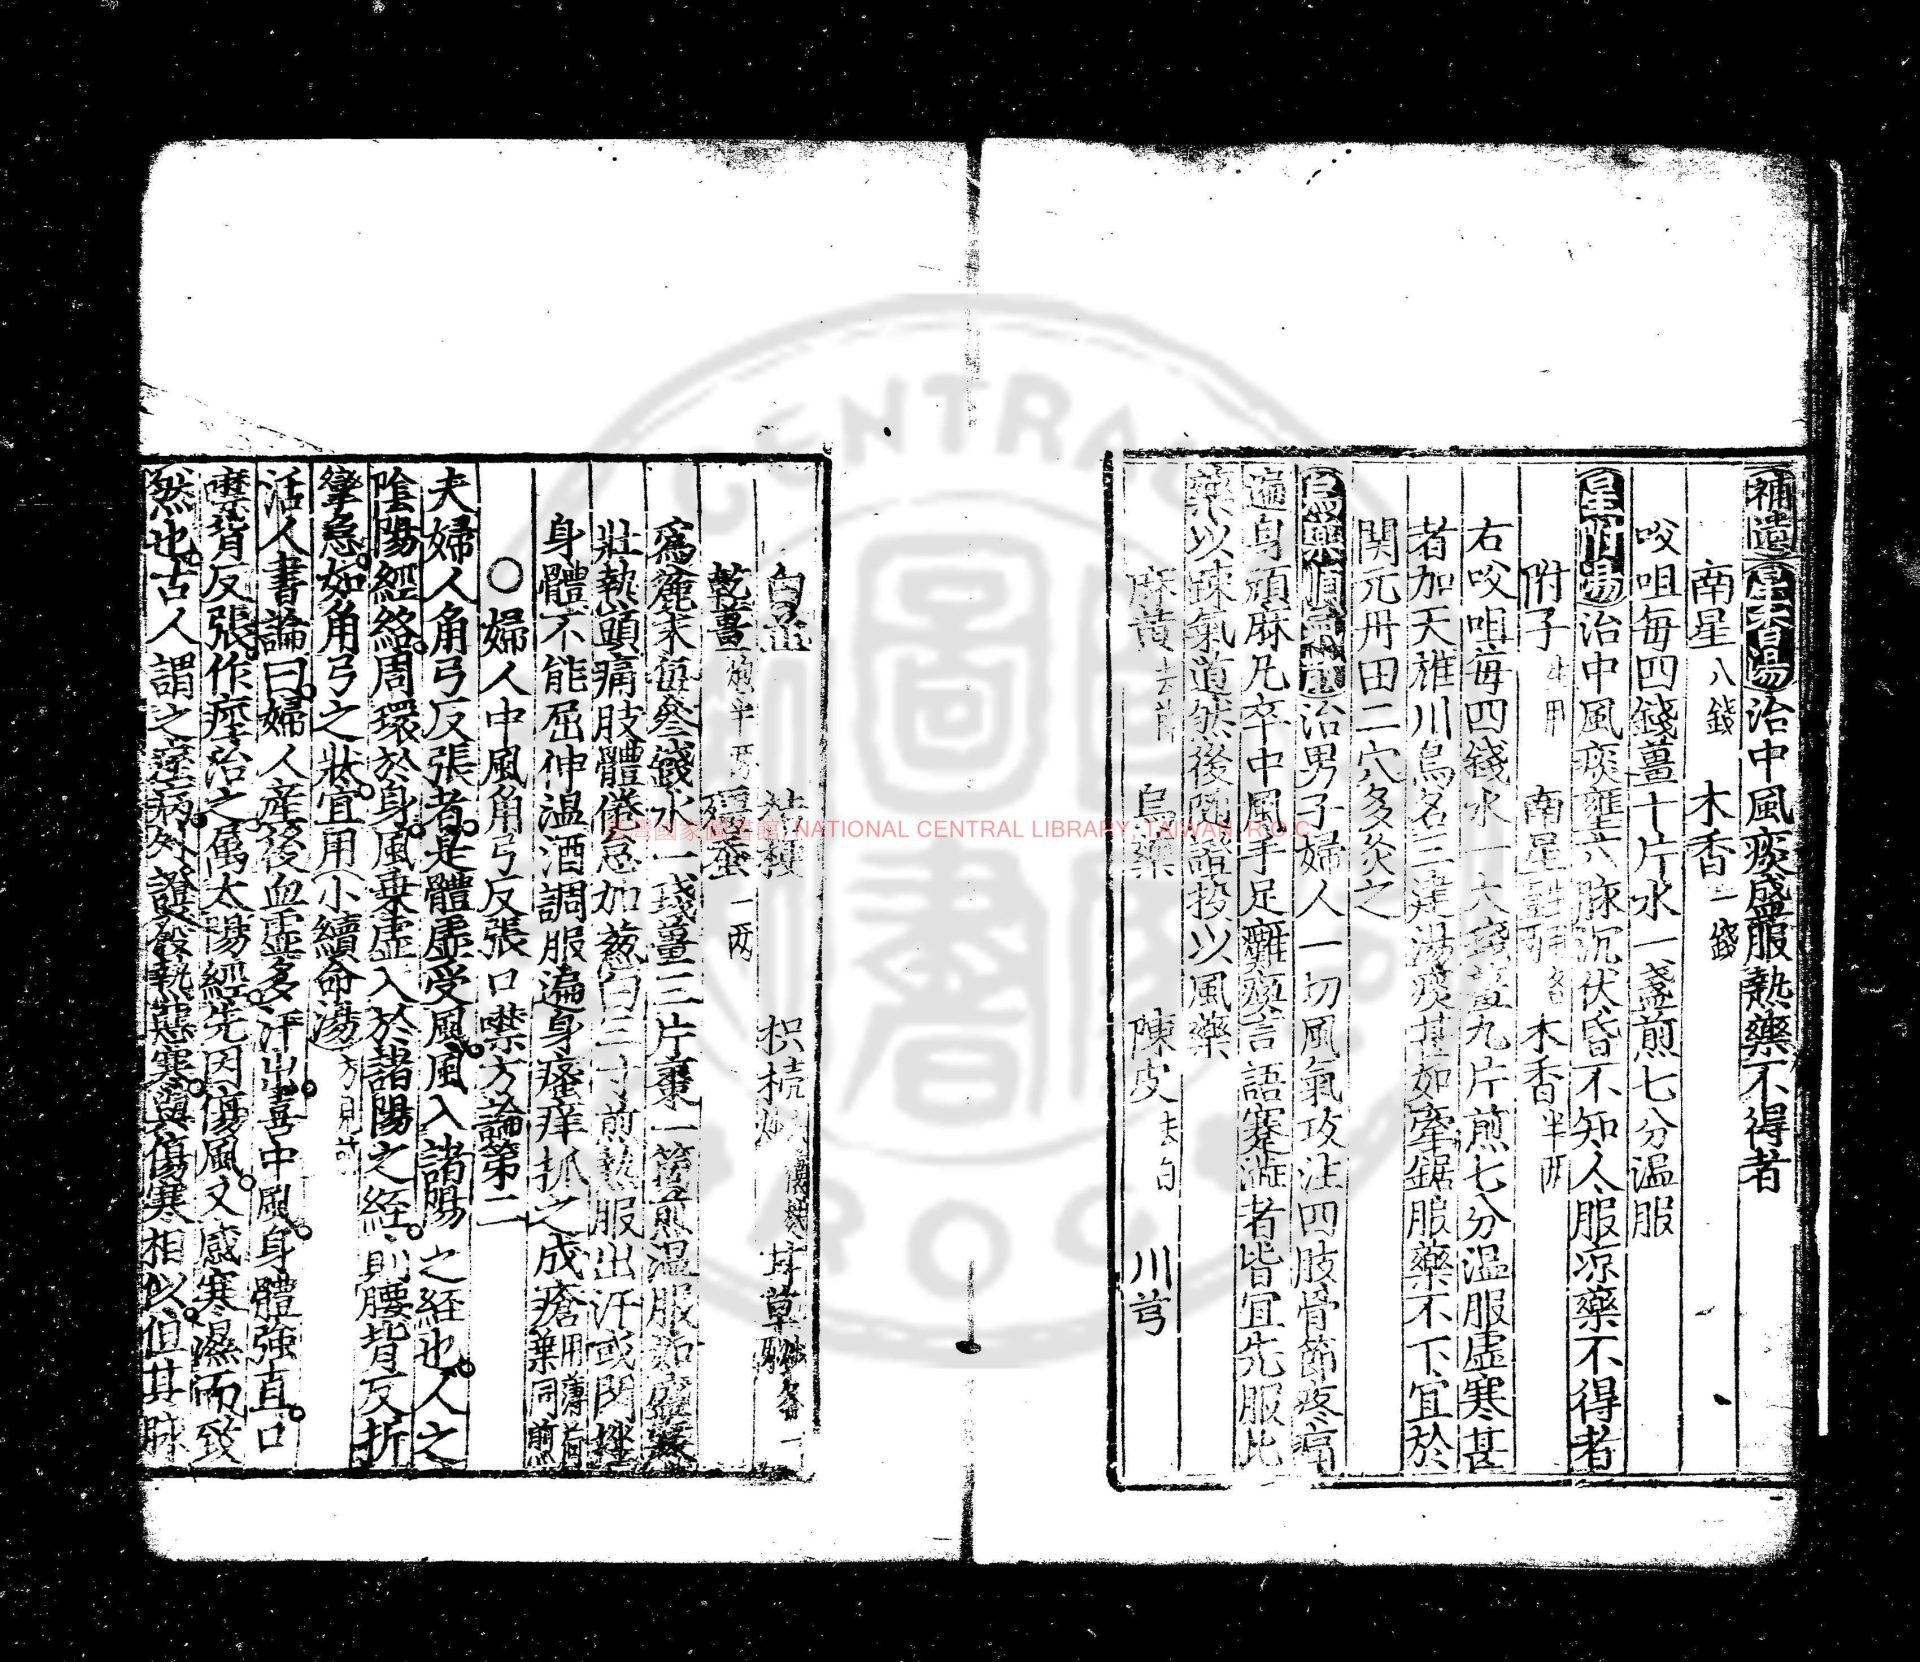 補遺星香湯治中風痰盛服熱藥不得者
南星八錢 木香一錢
㕮咀每四錢薑十片水一盞煎七分溫服
星附湯治中風痰壅六脉沉伏昏不知人服凉藥不得者
附子生用 南星 木香半兩
右㕮咀每四錢水一大盞薑九片煎七分溫服虛寒甚
者加天雄川烏名三建湯痰甚如牽鋸服藥不下宜於
関元丹田二穴多灸之
烏藥順氣散治男子婦人一切風氣攻注四肢骨節疼痛
遍身頑麻凡卒中風手足癱瘓言語蹇澁者皆宜先服此
藥以踈氣道然後隨證投以風藥
麻黄去節 烏藥 陳皮去白 川芎
白芷 桔梗 枳殻炒 甘草炒各一
乾薑炮半兩 殭蚕一兩
為麄末每叁錢水一盞薑三片棗一箇煎溫服如感寒
壯熱頭痛肢體倦怠加葱白三寸煎熱服出汗或閃挫
身體不能屈伸温酒調服遍身瘙痒抓之成瘡用薄荷煎同前
○婦人中風角弓反張口噤方論第二
夫婦人角弓反張者是體虛受風風入諸陽之経也人之
陰陽經絡周環於身風乗虛入於諸陽之経則腰背反折
攣急如角弓之狀宜用小續命湯方見前
活人書論曰婦人産後血虛多汗出喜中風身體強直口
噤背反張作痙治之属太陽經先因傷風又感寒濕而致
然也古人謂之痓病外證發熱惡寒與傷寒相似但其脉